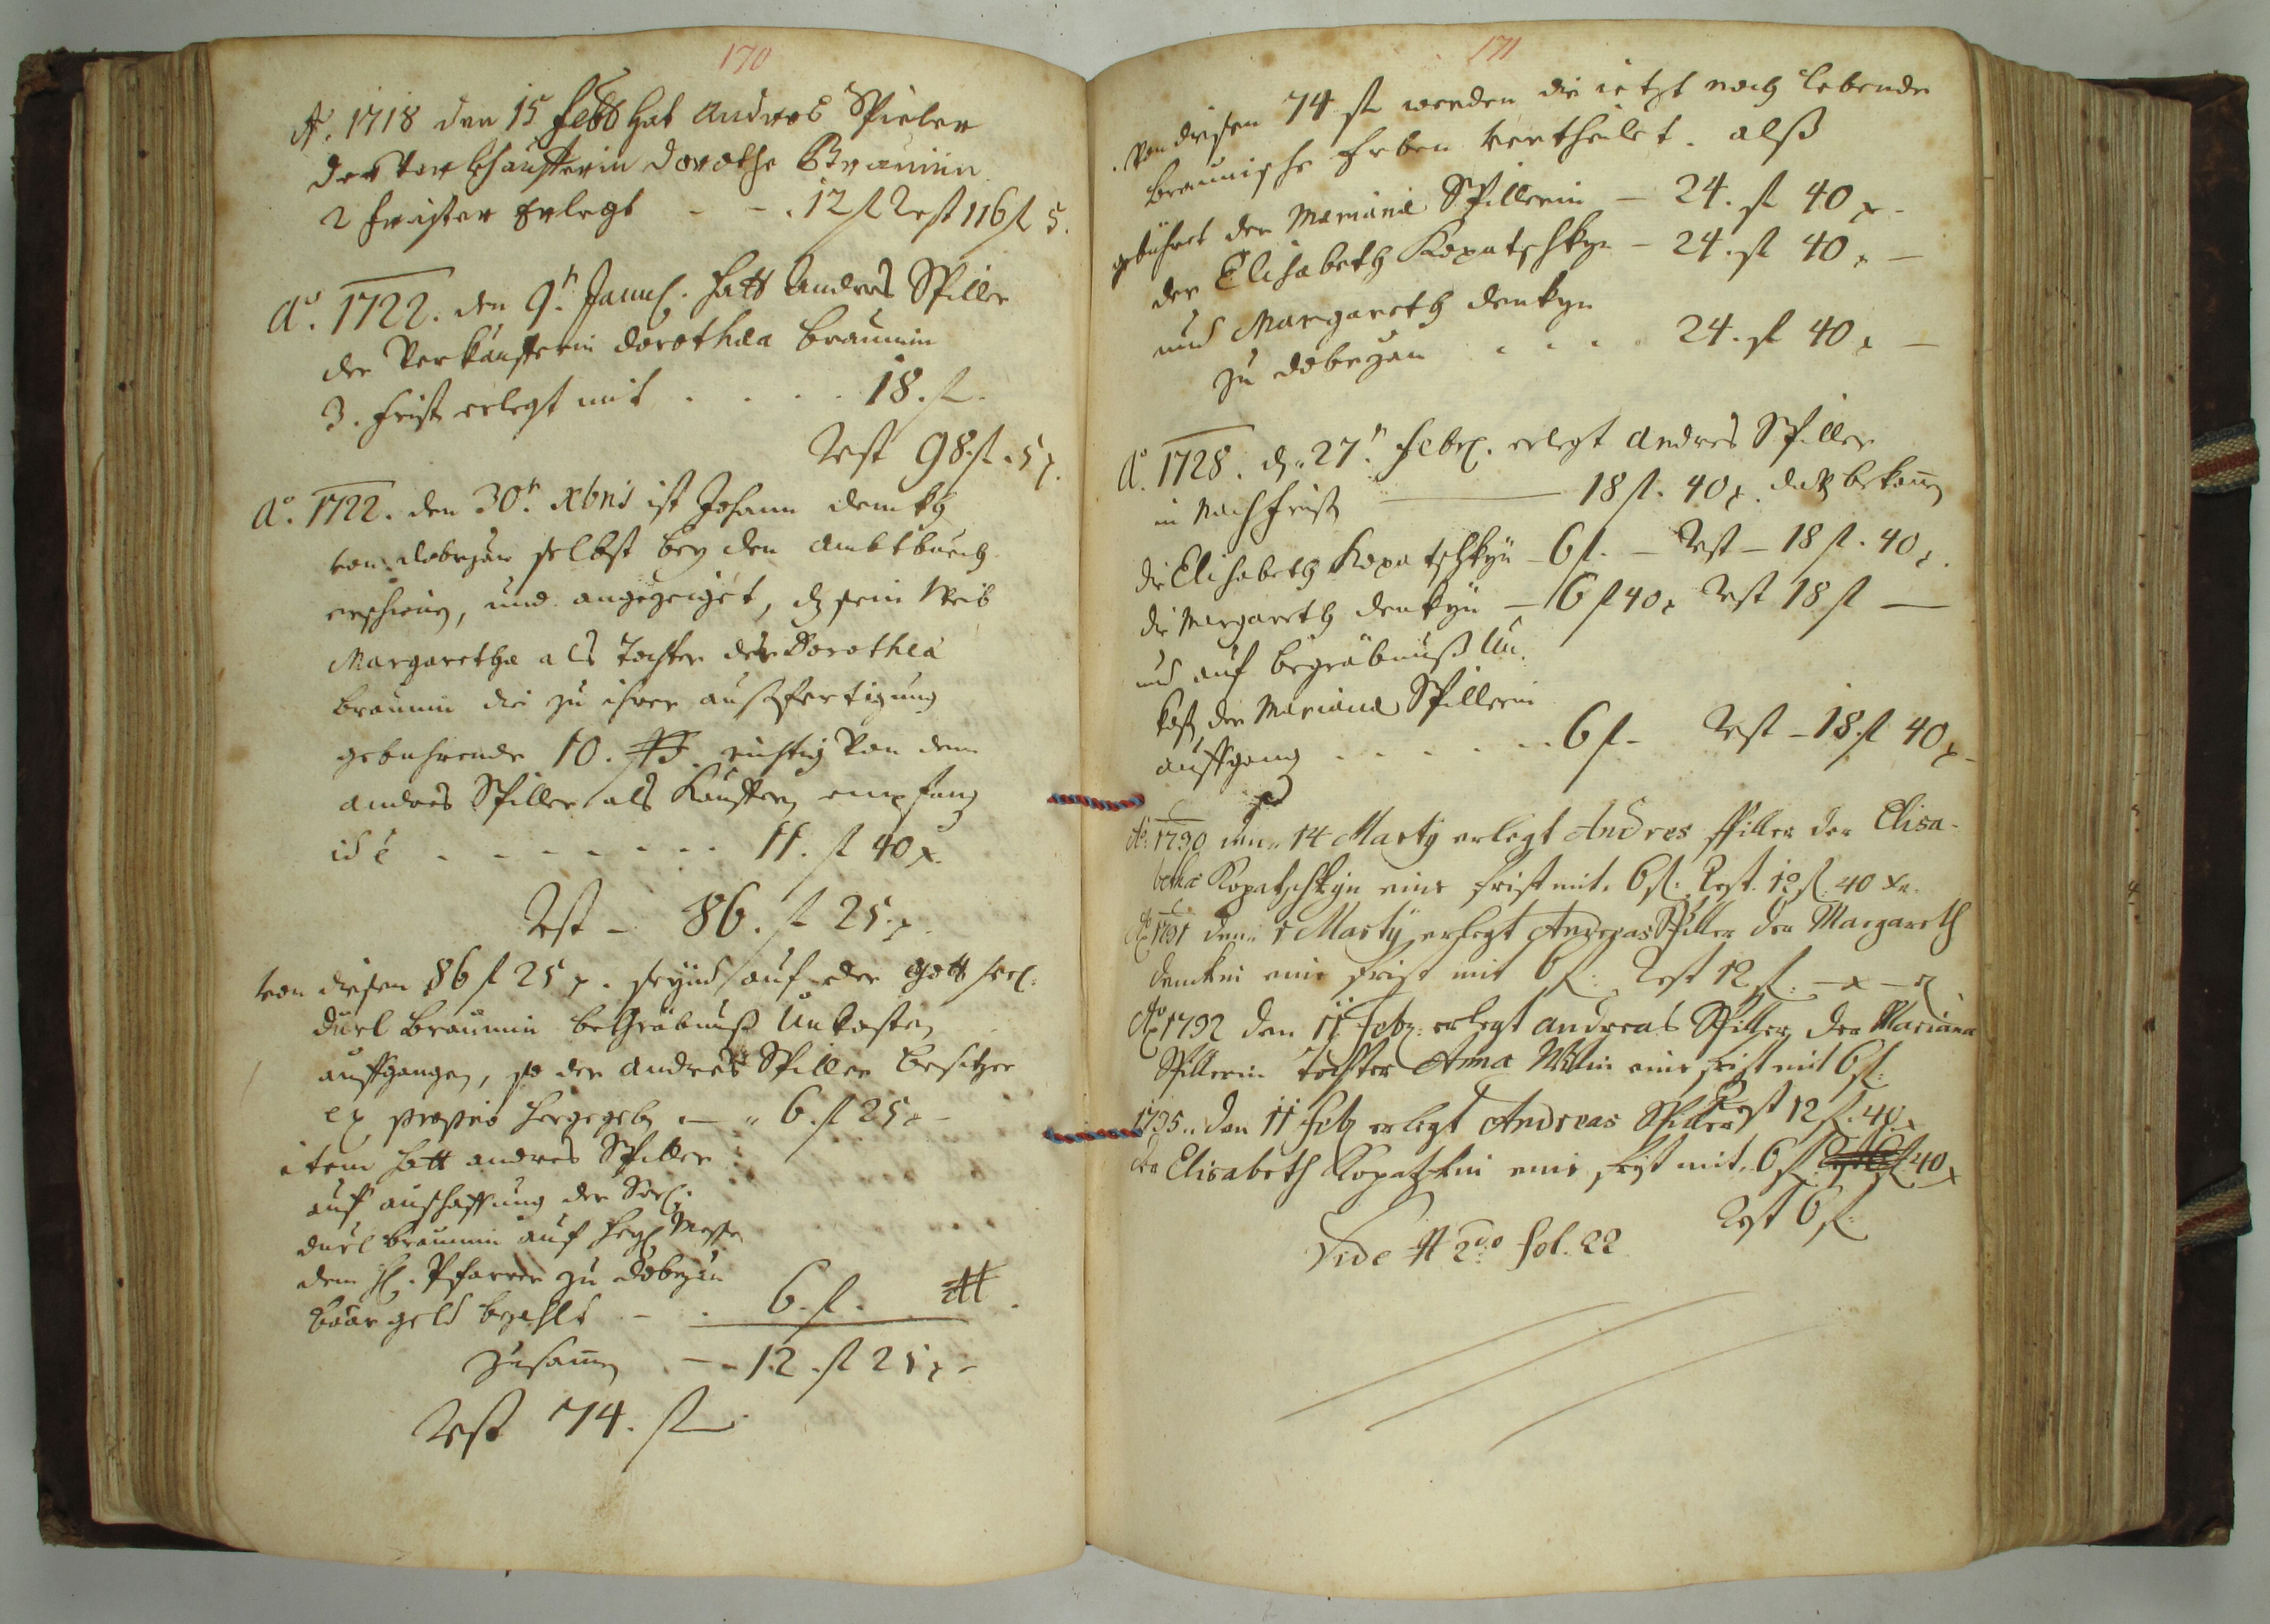 170
Aº. 1718 den 15 Febb hat Andres Spieler
der Verkhaufferin Dorothe Braunin
2 Fristen Erlegt - - . 12 fl Rest 116 fl 5.
Aº. 1722. den 9.n Januarÿ. hatt Andres Spiller
der Verkaufferin Dorothea Braunin
3. frist erlegt mit . . . . 18. fl.
Rest 98. fl. 5 x.
Aº. 1722. den 30.n Xbris ist Johann Demkh
von Dobrzan selbst beÿ den Ambtbuch
erschinen, und angezeiget, dz sein Weib
Margaretha als Tochter der Dorothea
Braunin die zu ihrer ausfertigung
gebuhrende 10. ßß. richtig von dem
Andres Spiller als Kauffern empfang
id e - - - - - - - 11. fl 40 x.
Rest - 86. fl 25. x.
von diesen 86 fl 25 x. seÿnd auf der Gott seel.
Durl Braunin Begräbnuß Unkosten
auffgangen, so der Andres Spiller besitzer
ex proprio hergegeben - " 6. fl 25 x -
item hatt Andres Spiller
auf anschaffung der Seel.
Durl Braunin auf heyl Messen
dem H. Pfarrer zu Dobrzan
baar geld bezahlt - . 6. fl.
Zusamen . - - 12. fl 25 x -
Rest 74. fl
171
Von diesen 74 fl werden die ietzt noch lebende
Braunische Erben vertheilet. alß
gebühret der Mariana Spillerin - 24. fl 40 x -
der Elisabeth Kopatschkyn - 24. fl 40 x -
und Margareth Demkyn
zu Dobrzan . . . . 24. fl 40 x -
Aº. 1728. d. 27.n Febr. erlegt Andres Spiller
in Nach frist — 18 fl. 40 x. bekomen
die Elisabeth Kopatschkyn - 6 fl. - Rest - 18 fl. 40 x.
die Margareth Demkyn - 6 fl 40 x Rest 18 fl —
und auf begräbnuß Un-
kost der Mariana Spillerin
auffgang . . . . . . 6 fl - Rest - 18. fl 40 x -
Aº: 1730 den 14 Martÿ erlegt Andres Spiller der Elisa-
betha Kopatschkyn eine frist mit. 6 fl: Rest. 12 fl: 40 x.
Aº 1731 den 1 Martÿ erlegt Andreas Spiller der Margareth
Demkin eine frist mit 6 fl: Rest 12 fl: - x - d
Aº 1732 den 11 Feb: erlegt Andreas Spiller der Mariana
Spillerin Tochter Anna eine frist mit 6 fl:
Rest 12 fl. 40 x
1735. den 11 Feb erlegt Andreas Spiller
der Elisabeth Kopatzkin eine frist mit. 6 fl: 40 x
Rest 6 fl:
Vide N 2do fol. 22